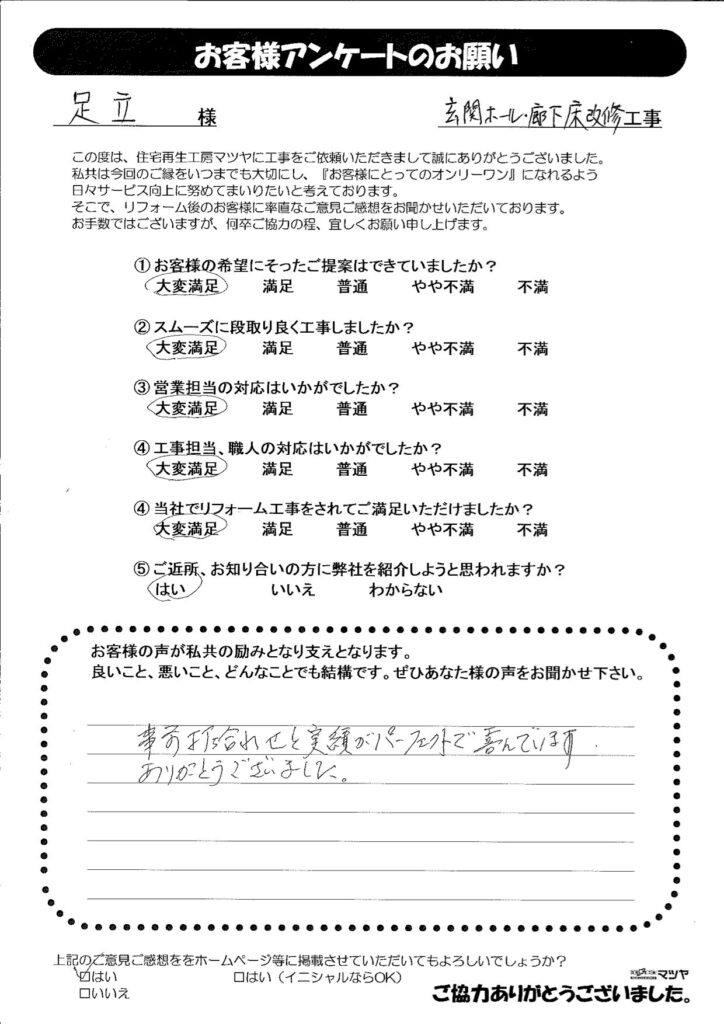 お客様アンケートのお願い
足立 様
玄関ホール・廊下床改修工事
この度は、住宅再生工房マツヤに工事をご依頼いただきまして誠にありがとうございました。
私共は今回のご縁をいつまでも大切にし、『お客様にとってのオンリーワン』になれるよう
日々サービス向上に努めてまいりたいと考えております。
そこで、リフォーム後のお客様に率直なご意見ご感想をお聞かせいただいております。
お手数ではございますが、何卒ご協力の程、宜しくお願い申し上げます。
①お客様の希望にそったご提案はできていましたか？
大変満足 満足 普通 やや不満 不満
②スムーズに段取り良く工事しましたか？
大変満足 満足 普通 やや不満 不満
③営業担当の対応はいかがでしたか？
大変満足 満足 普通 やや不満 不満
④工事担当、職人の対応はいかがでしたか？
大変満足 満足 普通 やや不満 不満
④当社でリフォーム工事をされてご満足いただけましたか？
大変満足 満足 普通 やや不満 不満
⑤ご近所、お知り合いの方に弊社を紹介しようと思われますか？
はい いいえ わからない
お客様の声が私共の励みとなり支えとなります。
良いこと、悪いこと、どんなことでも結構です。ぜひあなた様の声をお聞かせ下さい。
事前打合わせと実績がパーフェクトで喜んでいます
ありがとうございました。
上記のご意見ご感想ををホームページ等に掲載させていただいてもよろしいでしょうか？
□はい □はい（イニシャルならOK）
□いいえ
マツヤ
ご協力ありがとうございました。